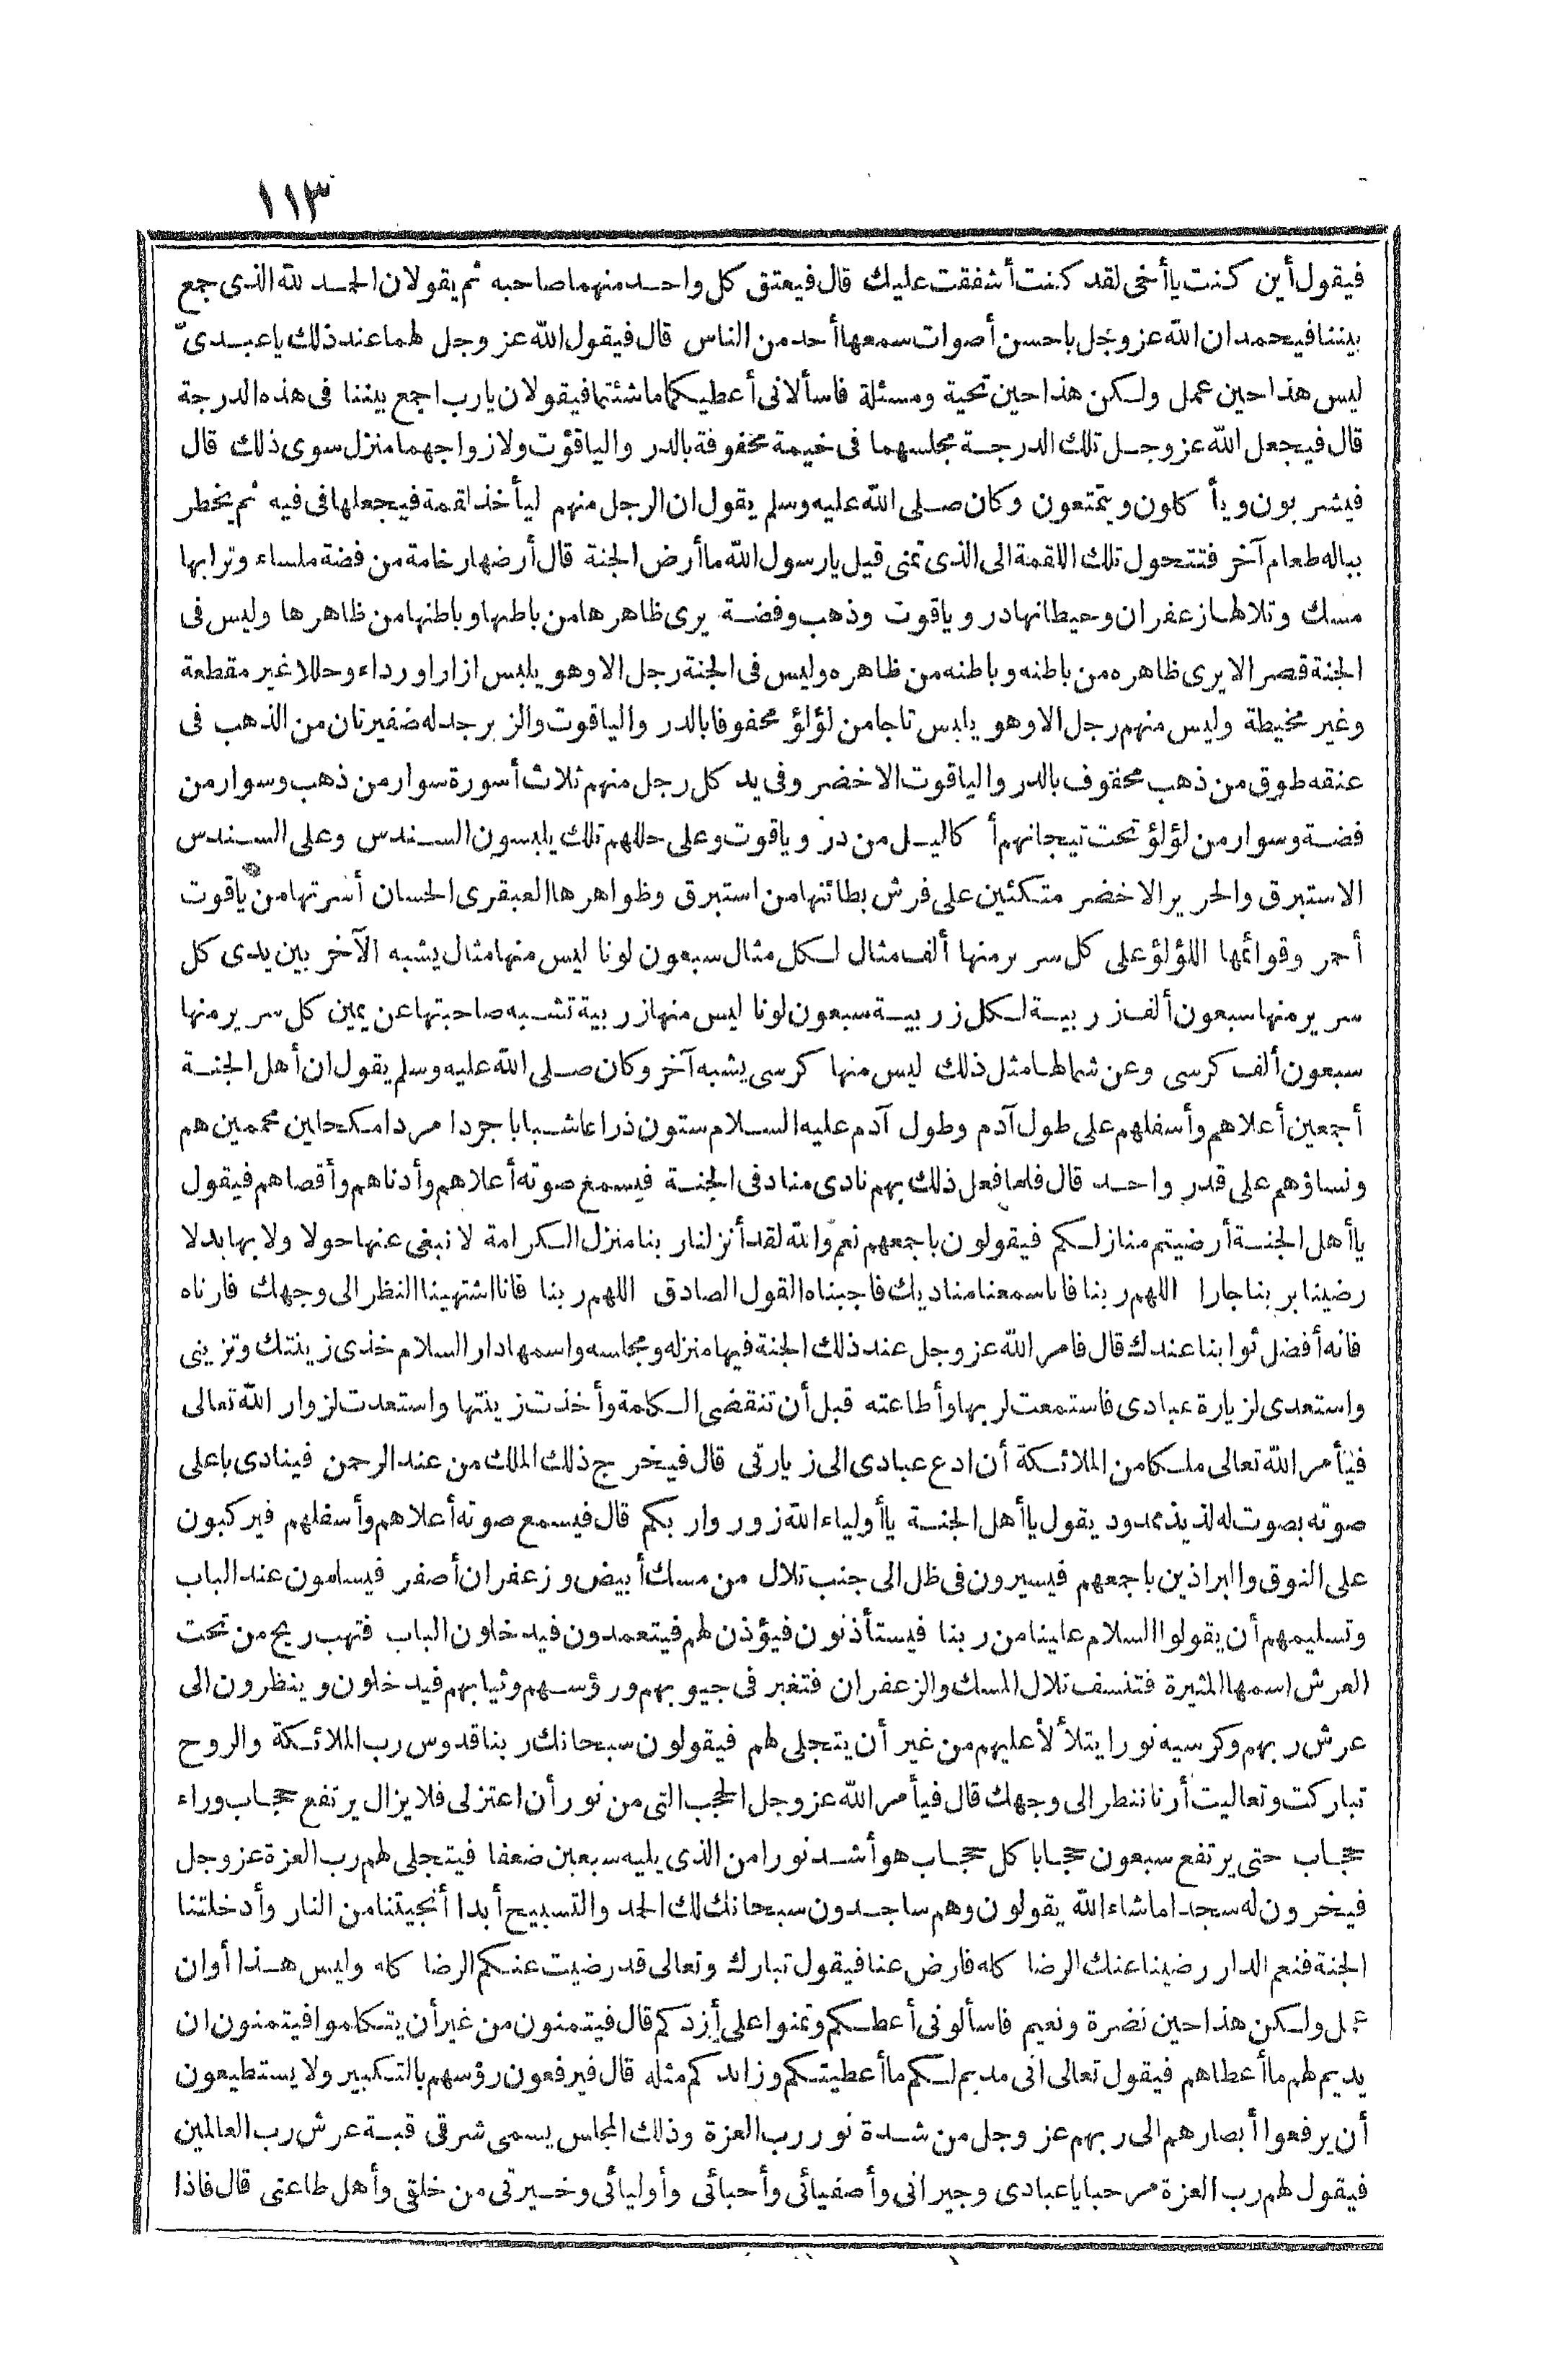 ١١٣
فيقول أين كنت يا أخى لقد كنت أشفقت عليك قال فيعتق كل واحد منهما صاحبه ثم يقولان الحمد لله الذى جمع
بيننا فيحمدان الله عز وجل باحسن أصوات سمعها أحد من الناس قال فيقول الله عز وجل لهما عند ذلك يا عبدىّ
ليس هذا حين عمل ولكن هذا حين تحية ومسئلة فاسألانى أعطيكما ما شئتما فيقولان يارب اجمع بيننا فى هذه الدرجة
قال فيجعل الله عز وجل تلك الدرجة مجلسهما فى خيمة محفوفة بالدر والياقوت ولازواجهما منزل سوى ذلك قال
فيشربون ويأكلون ويتمتعون وكان صلى الله عليه وسلم يقول ان الرجل منهم ليأخذ لقمة فيجعلها فى فيه ثم يخطر
بباله طعام آخر فتتحول تلك اللقمة الى الذى تمنى قيل يارسول الله ما أرض الجنة قال أرضها رخامة من فضة ملساء وترابها
مسك وتلالها زعفران وحيطانها در وياقوت وذهب وفضة يرى ظاهرها من باطنها وباطنها من ظاهرها وليس فى
الجنة قصر الا يرى ظاهره من باطنه وباطنه من ظاهره وليس فى الجنة رجل الا وهو يلبس ازارا ورداء وحللا غير مقطعة
وغير مخيطة وليس منهم رجل الا وهو يلبس تاجا من لؤلؤ محفوفا بالدر والياقوت والزبرجد له ضفيرتان من الذهب فى
عنقه طوق من ذهب محفوف بالدر والياقوت الاخضر وفى يد كل رجل منهم ثلاث أسورة سوار من ذهب وسوار من
فضة وسوار من لؤلؤ تحت تيجانهم أكاليل من در وياقوت وعلى حللهم تلك يلبسون السندس وعلى السندس
الاستبرق والحرير الاخضر متكئين على فرش بطائنها من استبرق وظواهرها العبقرى الحسان أسرتها من ياقوت
أحمر وقوائمها اللؤلؤ على كل سرير منها ألف مثال لكل مثال سبعون لونا ليس منها مثال يشبه الآخر بين يدى كل
سرير منها سبعون ألف زربية لكل زربية سبعون لونا ليس منها زربية تشبه صاحبتها عن يمين كل سرير منها
سبعون ألف كرسى وعن شمالها مثل ذلك ليس منها كرسى يشبه آخر وكان صلى الله عليه وسلم يقول ان أهل الجنة
أجمعين أعلاهم وأسفلهم على طول آدم وطول آدم عليه السلام ستون ذراعا شبابا جردا مردا مكحلين محممين هم
ونساؤهم على قدر واحد قال فلما فعل ذلك بهم نادى مناد فى الجنة فيسمع صوته أعلاهم وأدناهم وأقصاهم فيقول
يا أهل الجنة أرضيتم منازلكم فيقولون باجمعهم نعم والله لقد أنزلنا ربنا منزل الكرامة لا نبغى عنها حولا ولا بها بدلا
رضينا بربنا جارا اللهم ربنا فانا سمعنا مناديك فاجبناه القول الصادق اللهم ربنا فانا اشتهينا النظر الى وجهك فارناه
فانه أفضل ثوابنا عندك قال فامر الله عز وجل عند ذلك الجنة فيها منزله ومجلسه واسمها دار السلام خذى زينتك وتزينى
واستعدى لزيارة عبادى فاستمعت لربها وأطاعته قبل أن تنقضى الكلمة وأخذت زينتها واستعدت لزوار الله تعالى
فيأمر الله تعالى ملكا من الملائكة أن ادع عبادى الى زيارتى قال فيخرج ذلك الملك من عند الرحمن فينادى باعلى
صوته بصوت له لذيذ ممدود يقول يا أهل الجنة يا أولياء الله زوروا ربكم قال فيسمع صوته أعلاهم وأسفلهم فيركبون
على النوق والبراذين باجمعهم فيسيرون فى ظل الى جنب تلال من مسك أبيض وزعفران أصفر فيسلمون عند الباب
وتسليمهم أن يقولوا السلام علينا من ربنا فيستأذنون فيؤذن لهم فيتعمدون فيدخلون الباب فتهب ريح من تحت
العرش اسمها المثيرة فتنسف تلال المسك والزعفران فتغبر فى جيوبهم ورؤسهم وثيابهم فيدخلون وينظرون الى
عرش ربهم وكرسيه نورا يتلألأ عليهم من غير أن يتجلى لهم فيقولون سبحانك ربنا قدوس رب الملائكة والروح
تباركت وتعاليت أرنا ننظر الى وجهك قال فيأمر الله عز وجل الحجب التى من نور أن اعتزلى فلا يزال يرتفع حجاب وراء
حجاب حتى يرتفع سبعون حجابا كل حجاب هو أشد نورا من الذى يليه سبعين ضعفا فيتجلى لهم رب العزة عز وجل
فيخرون له سجدا ما شاء الله يقولون وهم ساجدون سبحانك لك الحمد والتسبيح أبدا أنجيتنا من النار وأدخلتنا
الجنة فنعم الدار رضينا عنك الرضا كله فارض عنا فيقول تبارك وتعالى قد رضيت عنكم الرضا كله وليس هذا أوان
عمل ولكن هذا حين نضرة ونعيم فاسألونى أعطكم وتمنوا على أزدكم قال فيتمنون من غير أن يتكلموا فيتمنون ان
يديم لهم ما أعطاهم فيقول تعالى انى مديم لكم ما أعطيتكم وزائدكم مثله قال فيرفعون رؤسهم بالتكبير ولا يستطيعون
أن يرفعوا أبصارهم الى ربهم عز وجل من شدة نور رب العزة وذلك المجلس يسمى شرقى قبة عرش رب العالمين
فيقول لهم رب العزة مرحبا يا عبادى وجيرانى وأصفيائى وأحبائى وأوليائى وخيرتى من خلقى وأهل طاعتى قال فاذا